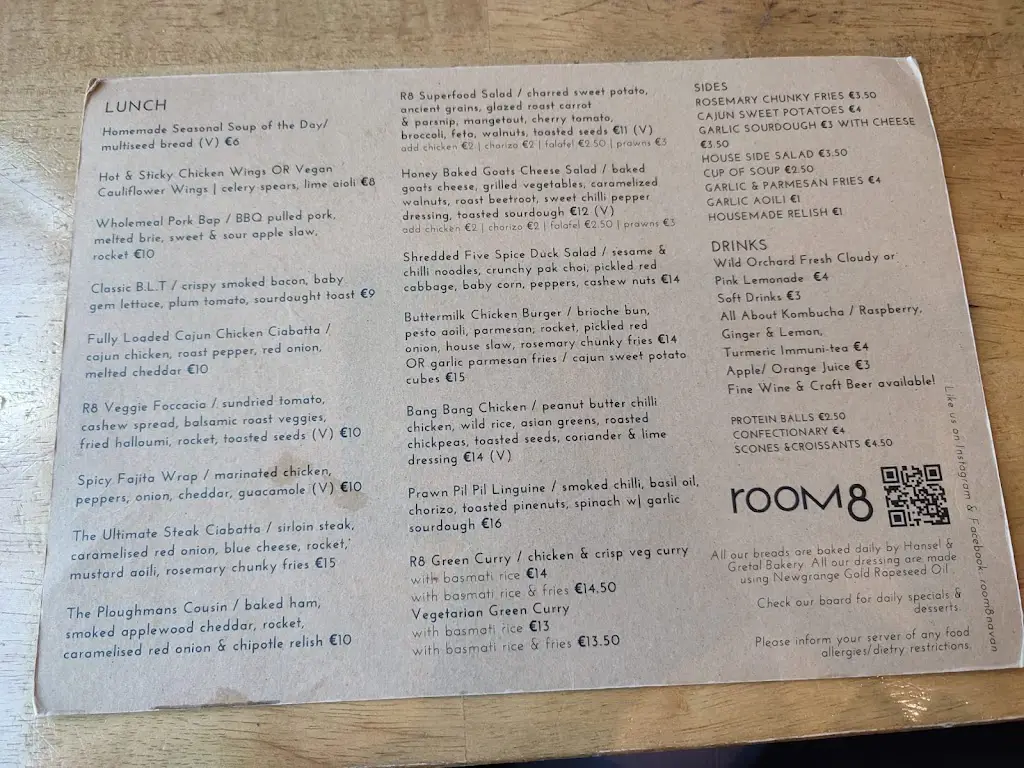 LUNCH
Homemade Seasonal Soup of the Day/
multiseed bread (V) €6
Hot & Sticky Chicken Wings OR Vegan
Cauliflower Wings | celery spears, lime aioli €8
Wholemeal Pork Bap / BBQ pulled pork,
melted brie, sweet & sour apple slaw,
rocket €10
Classic B.L.T / crispy smoked bacon, baby
gem lettuce, plum tomato, sourdought toast €9
Fully Loaded Cajun Chicken Ciabatta /
cajun chicken, roast pepper, red onion,
melted cheddar €10
R8 Veggie Foccacia / sundried tomato,
cashew spread, balsamic roast veggies,
fried halloumi, rocket, toasted seeds (V) €10
Spicy Fajita Wrap / marinated chicken,
peppers, onion, cheddar, guacamole (V) €10
The Ultimate Steak Ciabatta / sirloin steak,
caramelised red onion, blue cheese, rocket,
mustard aoili, rosemary chunky fries €15
The Ploughmans Cousin / baked ham,
smoked applewood cheddar, rocket,
caramelised red onion & chipotle relish €10
R8 Superfood Salad / charred sweet potato,
ancient grains, glazed roast carrot
& parsnip, mangetout, cherry tomato,
broccoli, feta, walnuts, toasted seeds €11 (V)
add chicken €2 | chorizo €2 | falafel €2.50 | prawns €3
Honey Baked Goats Cheese Salad / baked
goats cheese, grilled vegetables, caramelized
walnuts, roast beetroot, sweet chilli pepper
dressing, toasted sourdough €12 (V)
add chicken €2 | chorizo €2 | falafel €2.50 | prawns €3
Shredded Five Spice Duck Salad / sesame &
chilli noodles, crunchy pak choi, pickled red
cabbage, baby corn, peppers, cashew nuts €14
Buttermilk Chicken Burger / brioche bun,
pesto aoili, parmesan, rocket, pickled red
onion, house slaw, rosemary chunky fries €14
OR garlic parmesan fries / cajun sweet potato
cubes €15
Bang Bang Chicken / peanut butter chilli
chicken, wild rice, asian greens, roasted
chickpeas, toasted seeds, coriander & lime
dressing €14 (V)
Prawn Pil Pil Linguine / smoked chilli, basil oil,
chorizo, toasted pinenuts, spinach w| garlic
sourdough €16
R8 Green Curry / chicken & crisp veg curry
with basmati rice €14
with basmati rice & fries €14.50
Vegetarian Green Curry
with basmati rice €13
with basmati rice & fries €13.50
SIDES
ROSEMARY CHUNKY FRIES €3.50
CAJUN SWEET POTATOES €4
GARLIC SOURDOUGH €3 WITH CHEESE
€3.50
HOUSE SIDE SALAD €3.50
CUP OF SOUP €2.50
GARLIC & PARMESAN FRIES €4
GARLIC AOILI €1
HOUSEMADE RELISH €1
DRINKS
Wild Orchard Fresh Cloudy or
Pink Lemonade €4
Soft Drinks €3
All About Kombucha / Raspberry,
Ginger & Lemon,
Turmeric Immuni-tea €4
Apple/ Orange Juice €3
Fine Wine & Craft Beer available!
PROTEIN BALLS €2.50
CONFECTIONARY €4
SCONES &CROISSANTS €4.50
rOOM8
All our breads are baked daily by Hansel &
Gretal Bakery. All our dressing are made
using Newgrange Gold Rapeseed Oil.
Check our board for daily specials &
desserts.
Please inform your server of any food
allergies/dietry restrictions.
Like us on Instagram & Facebook, room8navan